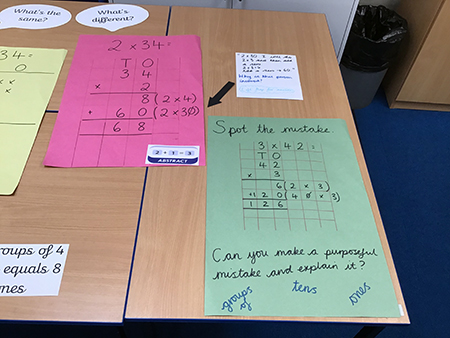 What's the
same?
What's
different?
0
2 x 34 =
T O
3 4
x 2
8 (2 x 4)
+ 6 0 (2 x 30)
6 8
2 + 1 = 3
ABSTRACT
add a zero
Spot the mistake
3 x 42 =
T O
4 2
x 3
6 (2 x 3)
+ 1 2 0 (4 0 x 3)
1 2 6
Can you make a purposeful
mistake and explain it?
groups
of
tens
ones
roups of 4
equals 8
nes